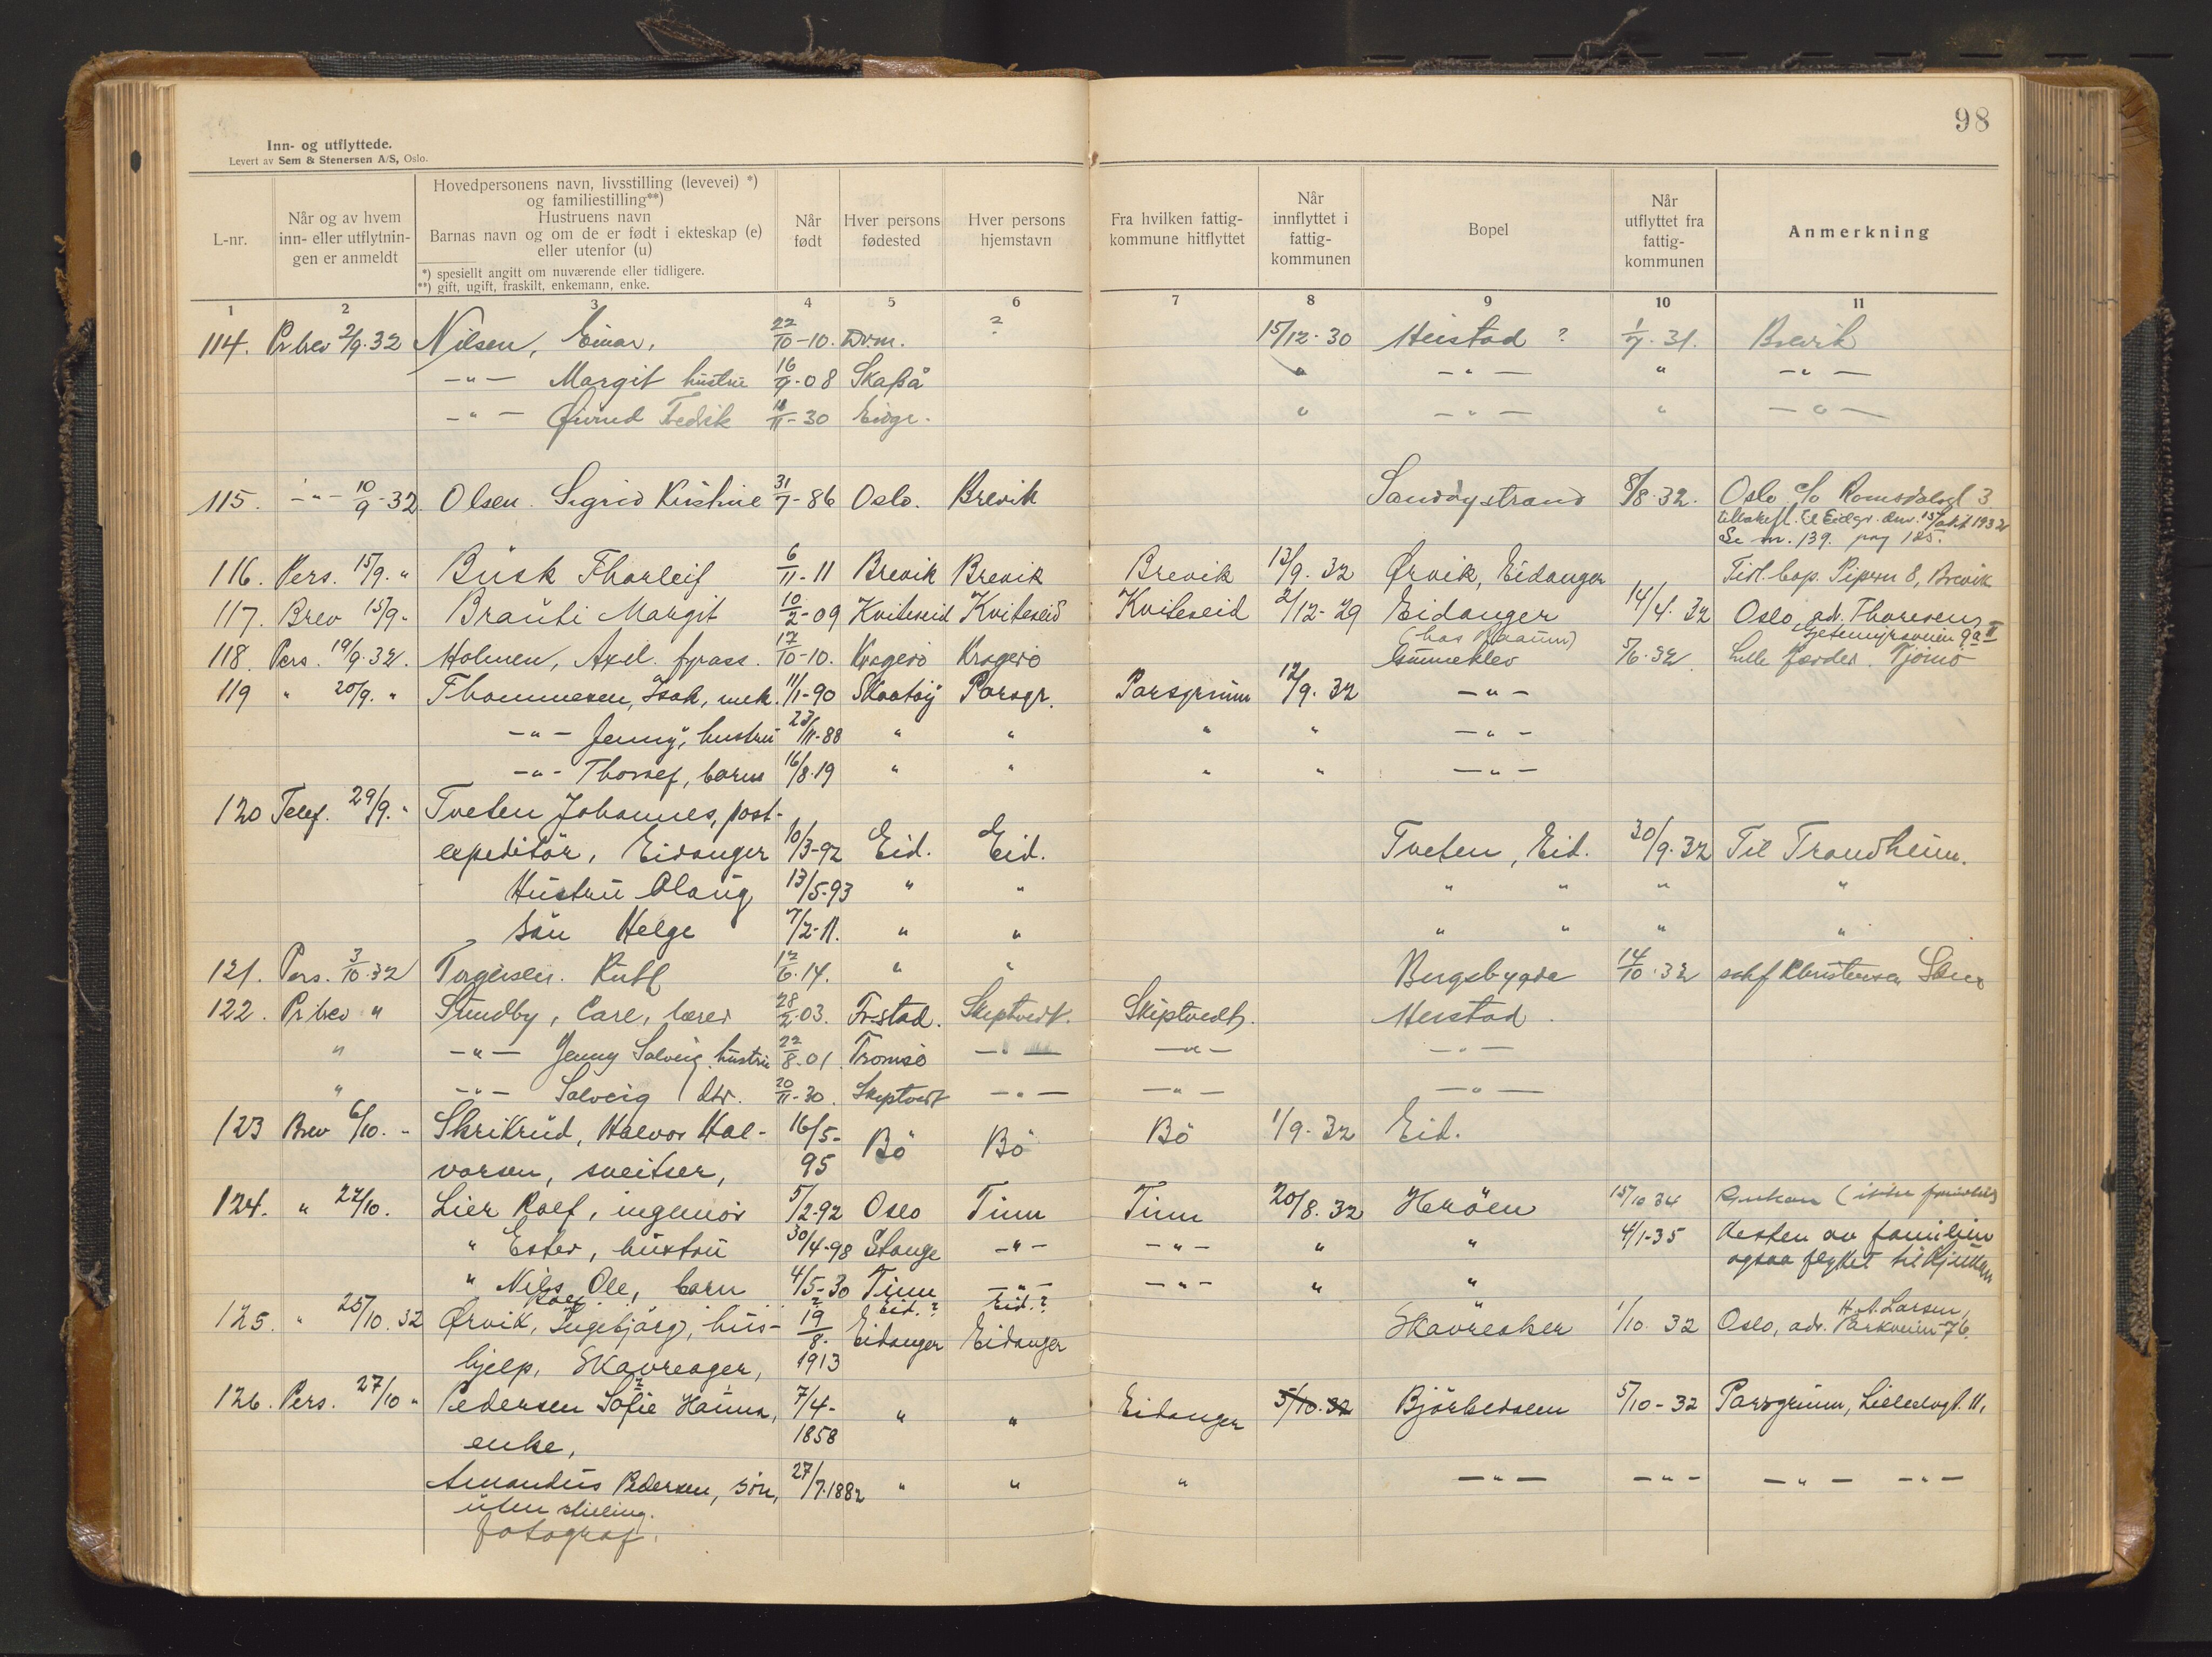 98
Inn- og utflyttede.
Levert av Sem & Stenersen A/S, Oslo.
L-nr.
Når og av hvem
inn- eller utflytnin-
gen er anmeldt
Hovedpersonens navn, livsstilling (levevei) *)
og familiestilling**)
Hustruens navn
Barnas navn og om de er født i ekteskap (e)
eller utenfor (u)
*) spesielt angitt om nuværende eller tidligere.
**) gift, ugift, fraskilt, enkemann, enke.
Når
født
Hver persons
fødested
Hver persons
hjemstavn
Fra hvilken fattig-
kommune hitflyttet
Når
innflyttet i
fattig-
kommunen
Bopel
Når
utflyttet fra
fattig-
kommunen
Anmerkning
1 2 3 4 5 6 7 8 9 10 11
114. Pr brev 2/9.32 Nilsen, Einar, 22/10-10. Drm. ? 15/12-30 Heistad ? 1/7.31. Brevik
-"- Margit hustru 16/9-08 Skaþå " -"- " -"-
-"- Øivind Fredrik 11/11-30 Eidgr. " -"- " -"-
115. -"- 10/9-32. Olsen. Sigrid Kristine 31/7-86 Oslo. Brevik Sandøystrand 8/8.32. Oslo c/o Romsdalsgt 3.
tilbakefl. til Eidgr. den 15/okt 1932
Se nr. 139. pag 125.
116. Pers. 15/9. " Busk Thorleif 6/11-11 Brevik Brevik Brevik 13/9.32 Ørvik, Eidanger Tidl. bop. Pipern 8, Brevik
117. Brev 15/9 " Brauti Margit 10/2-09 Kviteseid Kviteseid Kviteseid 2/12-29 Eidanger 14/4.32 Oslo, adr. Thoresen,
(hos Raaum) Gjetemyrsveien 9a II
118. Pers. 19/9.32. Holmen, Axel. fyrass. 17/10-10. Kragerö Kragerö Gunneklev 5/6.32. Lille Færder. Tjömö
119 " 20/9. " Thommesen, Isak, mek. 11/1-90 Skaatöy Porsgr. Porsgrunn 12/9.32 -"-
-"- Jenny, hustru 23/11-88 " " " " -"-
-"- Thorlef, barn 16/8.19 " " " " -"-
120 Telef. 29/9. " Tveten Johannes, post-
expeditör, Eidanger 10/3-92 Eid. Eid. Tveten, Eid. 30/9.32 Til Trondheim.
Hustru Olaug 13/5-93 " " " " " "
Sön Helge 7/2-11. " " " " " "
121. Pers. 3/10.32 Torgersen. Ruth 12/6.14. " " Bergsbygda 14/10.32 Christensen Skien
122. Pr brev " Sundby, Carl, lærer 28/2-03. Fr.stad. Skiptvedt. Skiptvedt. Heistad.
" -"- Jenny Solveig, hustru 22/8-01 Tromsö -"- -"- -"-
" -"- Solveig dtr. 20/11-30. Skiptvedt -"- -"- -"-
123 Brev 6/10. " Skrikrud, Halvor Hal- 16/5- Bö Bö Bö 1/9.32 Eid.
vorsen, sveitser, 95
124. " 24/10. Lier Rolf, ingeniör 5/2-92 Oslo Tinn Tinn 20/8.32 Heröen 15/10 34 Rjukan (ikke
" Ester, hustru 30/4-98 Stange -"- -"- " " 4/1-35 Resten av familien
" Nils Ole, barn 4/5-30 Tinn -"- -"- " " ogsaa flyttet til Rjukan
Eid.? Eid.?
125. " 25/10.32 Ørvik, Ingebjørg, hus- 19/8- Eidanger Eidanger Skavreaker 1/10.32 Oslo, adr. H. A. Larsen, Parkveien 76.
hjelp, Skavreager, 1913
126. Pers. 27/10 " Pedersen Sofie Hanna, 7/4- " " Eidanger 5/10.32 Björkedalen 5/10-32 Porsgrunn, Lillelvgt. 11,
enke, 1858
Amandus Pedersen, sön, 27/7.1882 " " " -"- -"- -"- -"-
uten stilling.
fotograf.